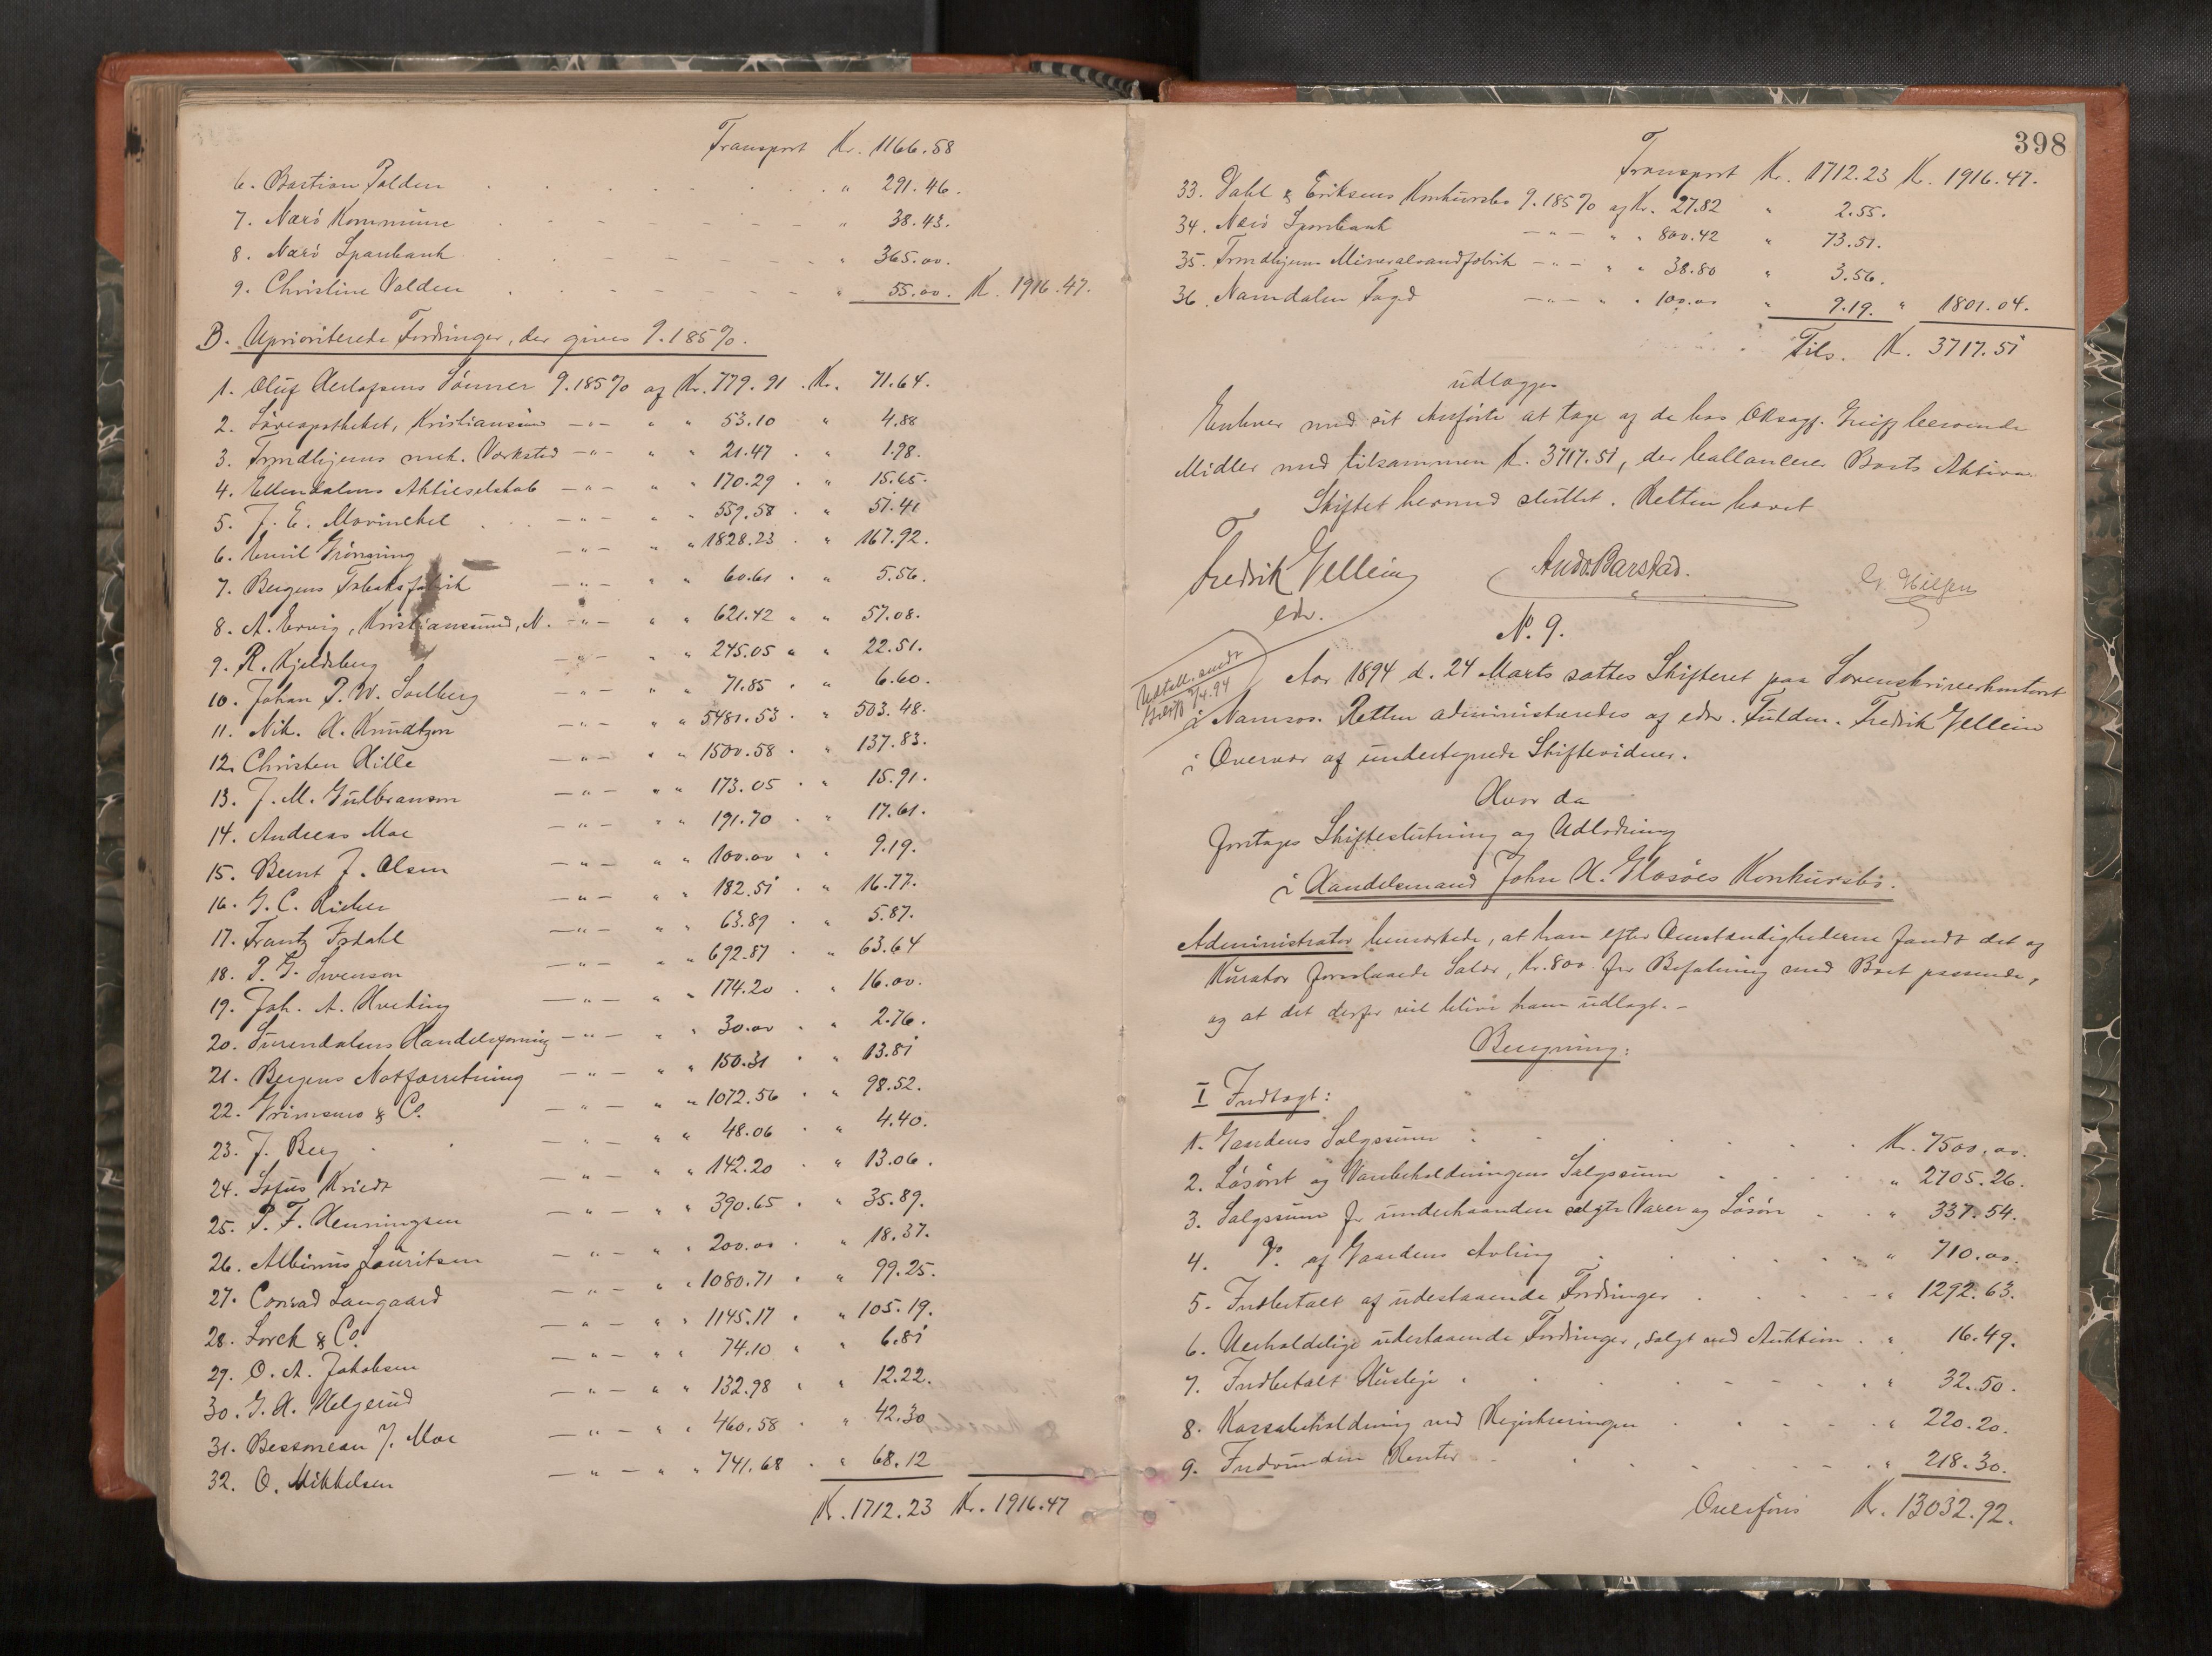 Transport Kr. 1166.58
6. Bastian Valden . . . . . . . " 291.46.
7. Nærö Kommune - - - - - - " 38.43.
8. Nærö Sparebank - - - - - - " 365.00.
9. Christine Valden - - - - - - " 55.00. K. 1916.47.
B. Uprioriterede Fordringer, der gives 9.185%.
1. Oluf Herlofsens Sönner 9.185% af Kr. 779.91 . Kr. 71.64.
2. Löveapotheket, Kristiansund —"— " " 53.10 " 4.88
3. Trondhjems mek. Værksted —"— " " 21.47 . " 1.98.
4. Ellendalens Aktieselskab —"— " " 170.29 . " 15.65.
5. J. E. Marinchel . . . —"— " " 559.58 . " 51.41
6. Emil Grönning —"— " " 1828.23 . " 167.92.
7. Bergens Tobaksfabrik —"— " " 60.61 . " 5.56.
8. A. Ervig, Kristiansund, N. —"— " " 621.42 " " 57.08.
9. R. Kjeldsberg —"— " " 245.05 " " 22.51.
10. Johan P. W. Solberg —"— " " 71.85 . " 6.60.
11. Nik. H. Knudtzon —"— " " 5481.53 . " 503.48.
12. Christen Hille —"— " " 1500.58 . " 137.83.
13. J. M. Gulbranson —"— " " 173.05 . " 15.91.
14. Andreas Moe —"— " " 191.70 . " 17.61.
15. Bernt J. Olsen —"— " " 100.00 . " 9.19.
16. G. C. Rieber —"— " " 182.51 . " 16.77.
17. Frantz Isdahl —"— " " 63.89 . " 5.87.
18. P. G. Svenson —"— " " 692.87 . " 63.64
19. Joh. A. Hveding —"— " " 174.20 . " 16.00.
20. Surendalens Handelsforening —"— " " 30.00 . " 2.76.
21. Bergens Notforretning —"— " " 150.31 . " 13.81
22. Grimsmo & Co. —"— " " 1072.56 . " 98.52.
23. J. Berg . —"— " " 48.06 . " 4.40.
24. Sofus Kriedt —"— " " 142.20 . " 13.06.
25. P. F. Henningsen —"— " " 390.65 . " 35.89.
26. Albinus Lauritsen —"— " " 200.00 . " 18.37.
27. Conrad Langaard —"— " " 1080.71 . " 99.25.
28. Lorck & Co. —"— " " 1145.17 . " 105.19.
29. O. A. Jakobsen —"— " " 74.10 " " 6.81
30. G. H. Helgerud —"— " " 132.98 " " 12.22.
31. Bessonean J. Moe —"— " " 460.58 . " 42.30
32. O. Mikkelsen —"— " " 741.68 . " 68.12
Kr. 1712.23 Kr. 1916.47
398
Transport Kr. 1712.23 K. 1916.47.
33. Dahl & Eriksens Konkursbo 9.185% af Kr. 27.82 " 2.55.
34. Nærö Sparebank —"— " " 800.42 " 73.51.
35. Trondhjems Mineralvandfabrik —"— " " 38.80 " 3.56.
36. Namdalens Foged —"— " " 100.00 " 9.19. " 1801.04.
Tils. K. 3717.51
udlægges
Enhver med sit Anförte at tage af de hos Oksagf. Greiff beroende
Midler med tilsammen K. 3717.51, der ballancerer Boets Aktiva.
Skiftet hermed sluttet. Retten hævet
Fredrik Vellein
edv.
Ands Barstad.
N. 9.
Udskr. sendt
Greiff 9/4.94
Aar 1894 d. 24 Marts sattes Skifteret paa Sorenskriverkontoret
i Namsos. Retten administreredes af edv. Fuldm. Fredrik Vellein
i Overvær af undertegnede Skiftevidner.
Hvor da
foretages Skifteslutning og Udlodning
i Handelsmand John H. Glasöes Konkursbo.
Administrator bemærkede, at han efter Omstændighederne fandt det af
Kurator foreslaaede Salær, Kr. 800 for Befatning med Boet passende,
og at det derfor vil blive ham udlagt. -
Beregning:
I Indtægt:
1. Gaardens Salgssum . . . . . . Kr. 7500.00.
2. Lösöret og Varebeholdningens Salgssum . . . " 2705.26.
3. Salgssum for underhaanden solgte Varer og Lösöre . . " 337.54.
4. Do. af Gaardens Avling . . . . " 710.00.
5. Indbetalt af udestaaende Fordringer . . . . " 1292.63.
6. Uerholdelige udestaaende Fordringer, solgt ved Auktion . " 16.49.
7. Indbetalt Husleje . . . . . " 32.50.
8. Kassabeholdning ved Registreringen . . . . " 220.20.
9. Indvundne Renter . . . . . " 218.30.
Overföres Kr. 13032.92.